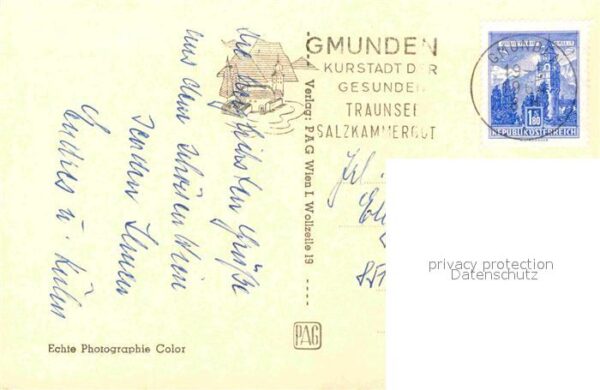 die herzlichsten Grüße
aus dem schönen Wien
senden Ihnen
GMUNDEN
KURSTADT DER
GESUNDEN
TRAUNSEE
SALZKAMMERGUT
GMUNDEN
1.80
REPUBLIK ÖSTERREICH
Verlag: PAG Wien I. Wollzeile 19
privacy protection
Datenschutz
PAG
Echte Photographie Color